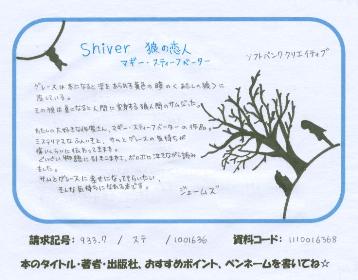 Shiver 狼の恋人
マギー・スティーフベーター
ソフトバンククリエイティブ
グレースは冬になると姿をあらわす黄色の瞳の〈わたしの狼〉に
恋している。
その狼は夏になると人間に変身する狼人間のサムだった。
わたしの大好きな作家さん、マギー・スティーフベーターの作品。
ミステリアスなふんいきと、サムとグレースの気持ちが
痛いくらいに伝わってきます。
ぐいぐい物語に引きこまれて、ボロボロに泣きながら読み
ました。
サムとグレースに幸せになってもらいたい、
そんな気持ちになれる本です。
ジェームズ
請求記号: 933.7 / ステ / 1001636 資料コード: 1110016368
本のタイトル・著者・出版社、おすすめポイント、ペンネームを書いてね☆